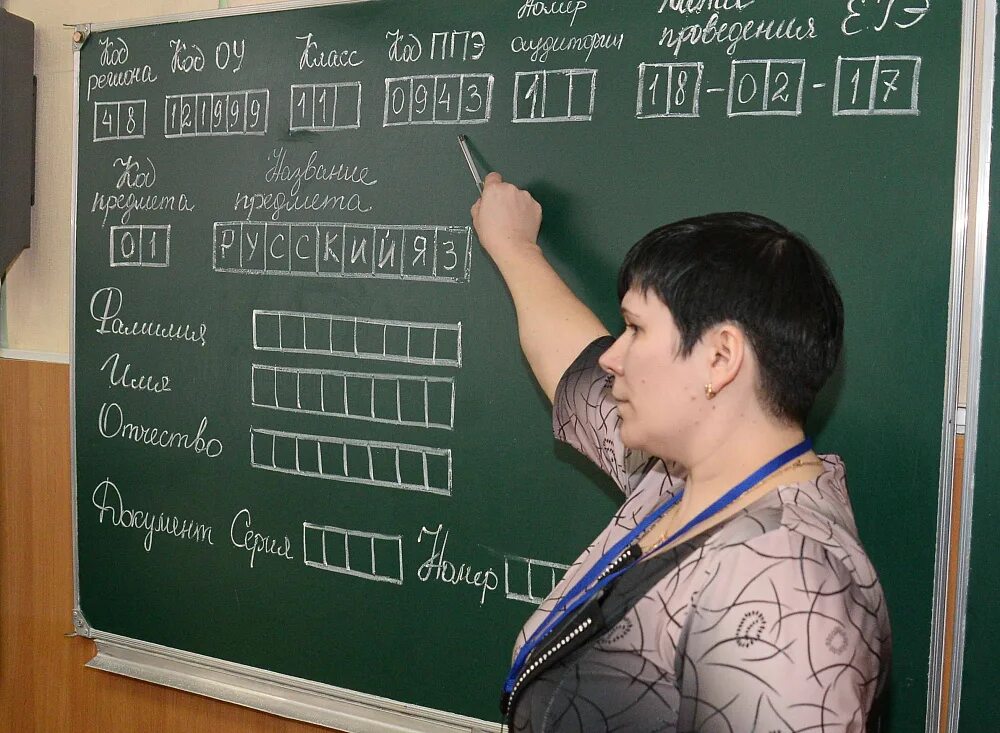 Код региона Код ОУ Класс Код ППЭ Номер аудитории Дата проведения ЕГЭ
48 121999 11 0943 1 18-02-17
Код предмета Название предмета
01 РУССКИЙЯЗ
Фамилия
Имя
Отчество
Документ Серия Номер